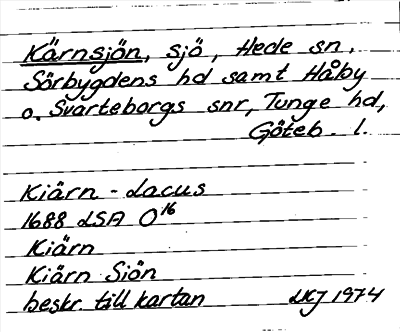 Kärnsjön, sjö, Hede sn,
Sörbygdens hd samt Håby
o. Svarteborgs snr, Tunge hd,
Göteb. l.
Kiärn - Lacus
1688 LSA O16
Kiärn
Kiärn Siön
beskr. till kartan LKJ 1974